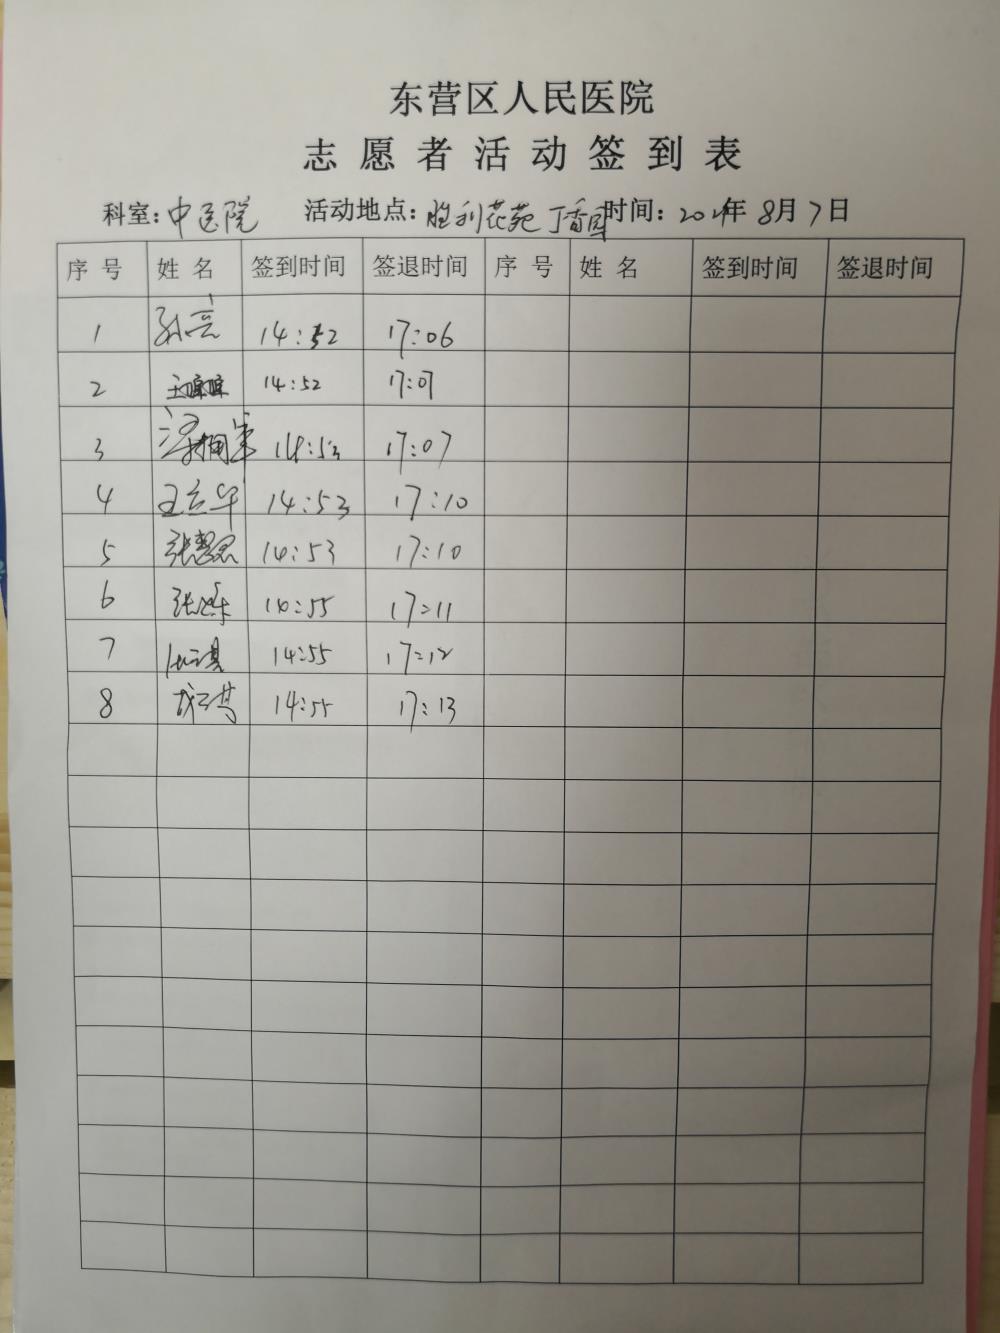 东营区人民医院
志愿者活动签到表
科室:中医院 活动地点:胜利花苑丁香 时间:2021年8月7日
序号 姓名 签到时间 签退时间 序号 姓名 签到时间 签退时间
1 孙亮 14:52 17:06
2 王 14:52 17:07
3 14:53 17:07
4 王立华 14:53 17:10
5 张慧 14:53 17:10
6 张 14:55 17:11
7 14:55 17:12
8 14:55 17:13